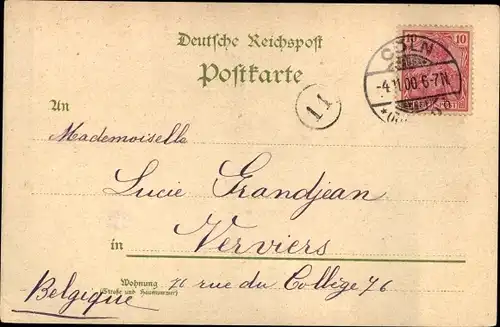 Deutsche Reichspost
Postkarte
10
CÖLN
-4.11.00.6-7N.
11
An
Mademoiselle
Lucie Grandjean
in Verviers
Wohnung 76 rue du Collège 76
(Straße und Hausnummer)
Belgique